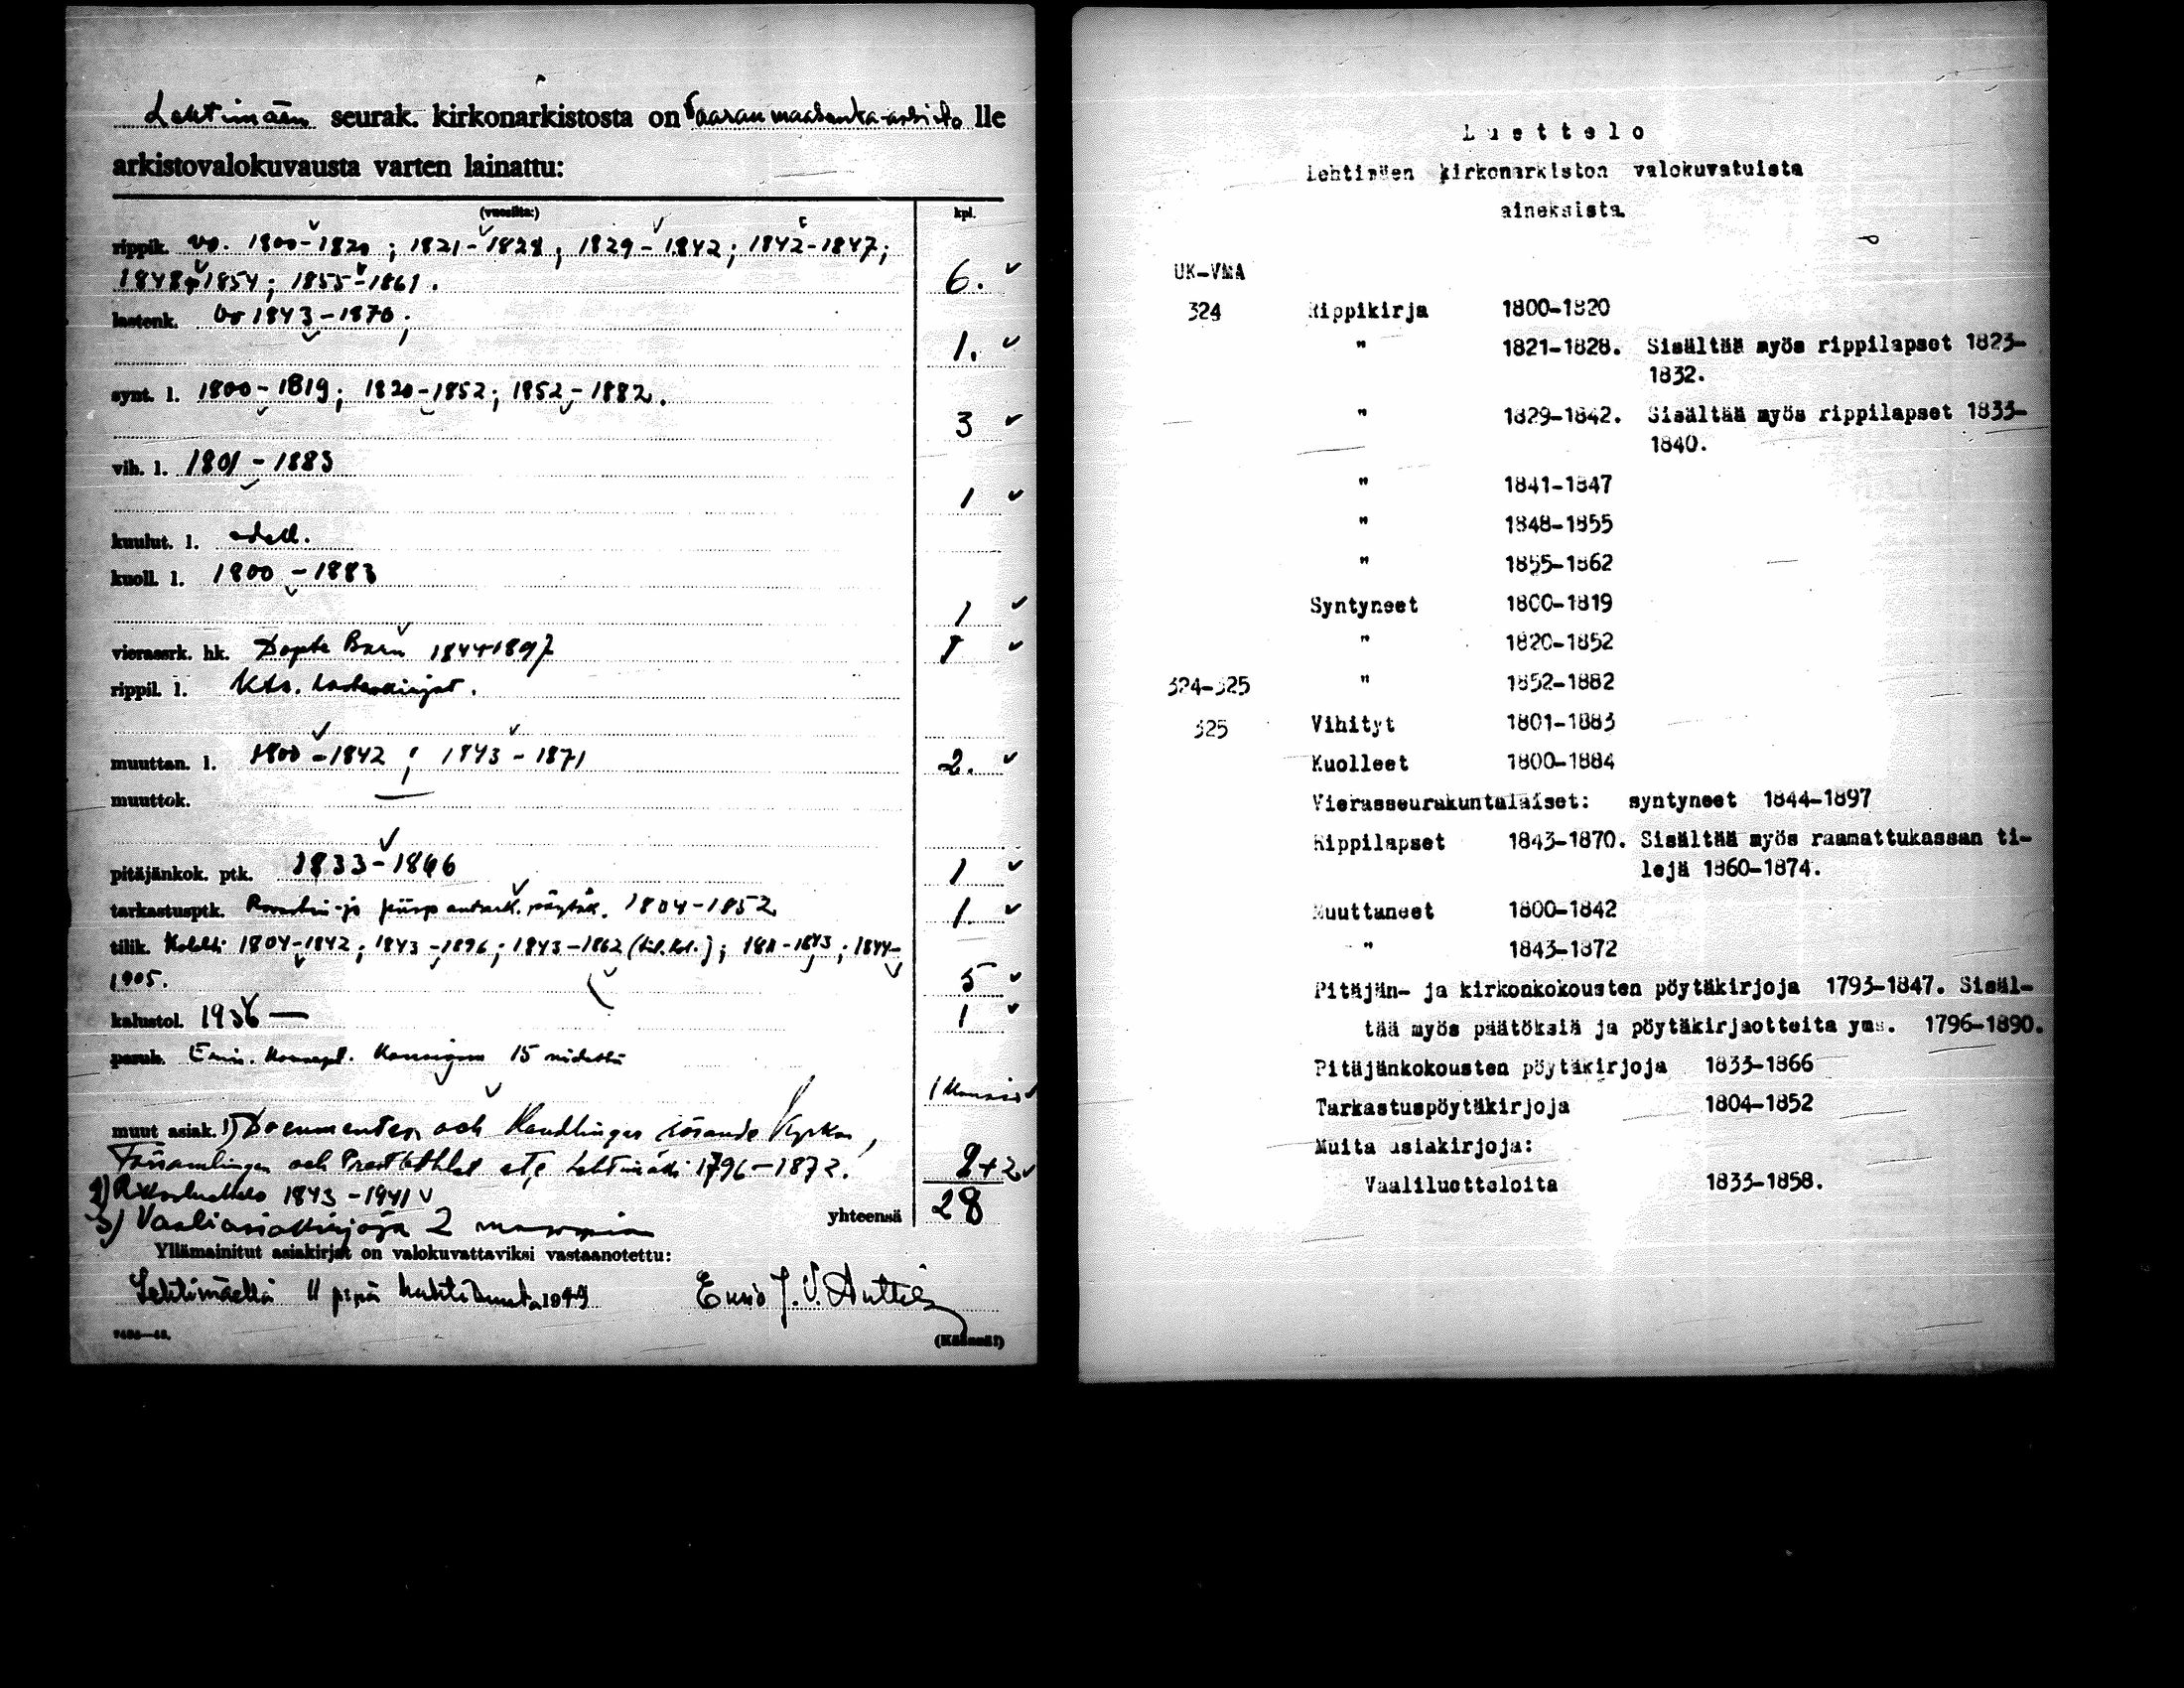 Lehtimäen seurak. kirkonarkistosta on Vaasan maakunta-arkisto lle
arkistovalokuvausta varten lainattu:
(vuosilta:) kpl.
rippik. vv. 1800-1820; 1821-1828; 1829-1842; 1842-1847;
1848-1854; 1855-1861. 6.
lastenk. vv 1843-1870;
1.
synt. l. 1800-1819; 1820-1852; 1852-1882.
3
vih. l. 1801-1883
1
kuulut. l. edell.
kuoll. l. 1800-1883
1
vierassrk. hk. Döpta Barn 1844-1897 1
rippil. l. Kts. lastenkirjat.
muuttan. l. 1800-1842; 1843-1871 2.
muuttok. —
pitäjänkok. ptk. 1833-1866 1
tarkastusptk. Rovastin- ja piisp 1804-1852 1.
tilik. 1804-1842; 1843-1896; 1843-1862; 1844-
1905. 5
kalustol. 1936— 1
15 nidettä
1
muut asiak. 1) Documenter och Handlingar rörande Kyrkan,
Församlingen och etc Lehtimäki 1796-1872. 2+2
2) Rikosluettelo 1843-1941
3) Vaaliasiakirjoja 2 yhteensä 28
Yllämainitut asiakirjat on valokuvattaviksi vastaanotettu:
Lehtimäellä 11 p:nä huhtikuuta 1949 J. V. Anttila
(Käännä!)
Luettelo
Lehtimäen kirkonarkiston valokuvatuista
aineksista.
UK-VMA
324 Rippikirja 1800-1820
" 1821-1828. Sisältää myös rippilapset 1823-
1832.
" 1829-1842. Sisältää myös rippilapset 1833-
1840.
" 1841-1847
" 1848-1855
" 1855-1862
Syntyneet 1800-1819
" 1820-1852
324-325 " 1852-1882
325 Vihityt 1801-1883
Kuolleet 1800-1884
Vierasseurakuntalaiset: syntyneet 1844-1897
Rippilapset 1843-1870. Sisältää myös raamattukassan ti-
lejä 1860-1874.
Muuttaneet 1800-1842
" 1843-1872
Pitäjän- ja kirkonkokousten pöytäkirjoja 1793-1847. Sisäl-
tää myös päätöksiä ja pöytäkirjaotteita yms. 1796-1890.
Pitäjänkokousten pöytäkirjoja 1833-1866
Tarkastuspöytäkirjoja 1804-1852
Muita asiakirjoja:
Vaaliluetteloita 1833-1858.